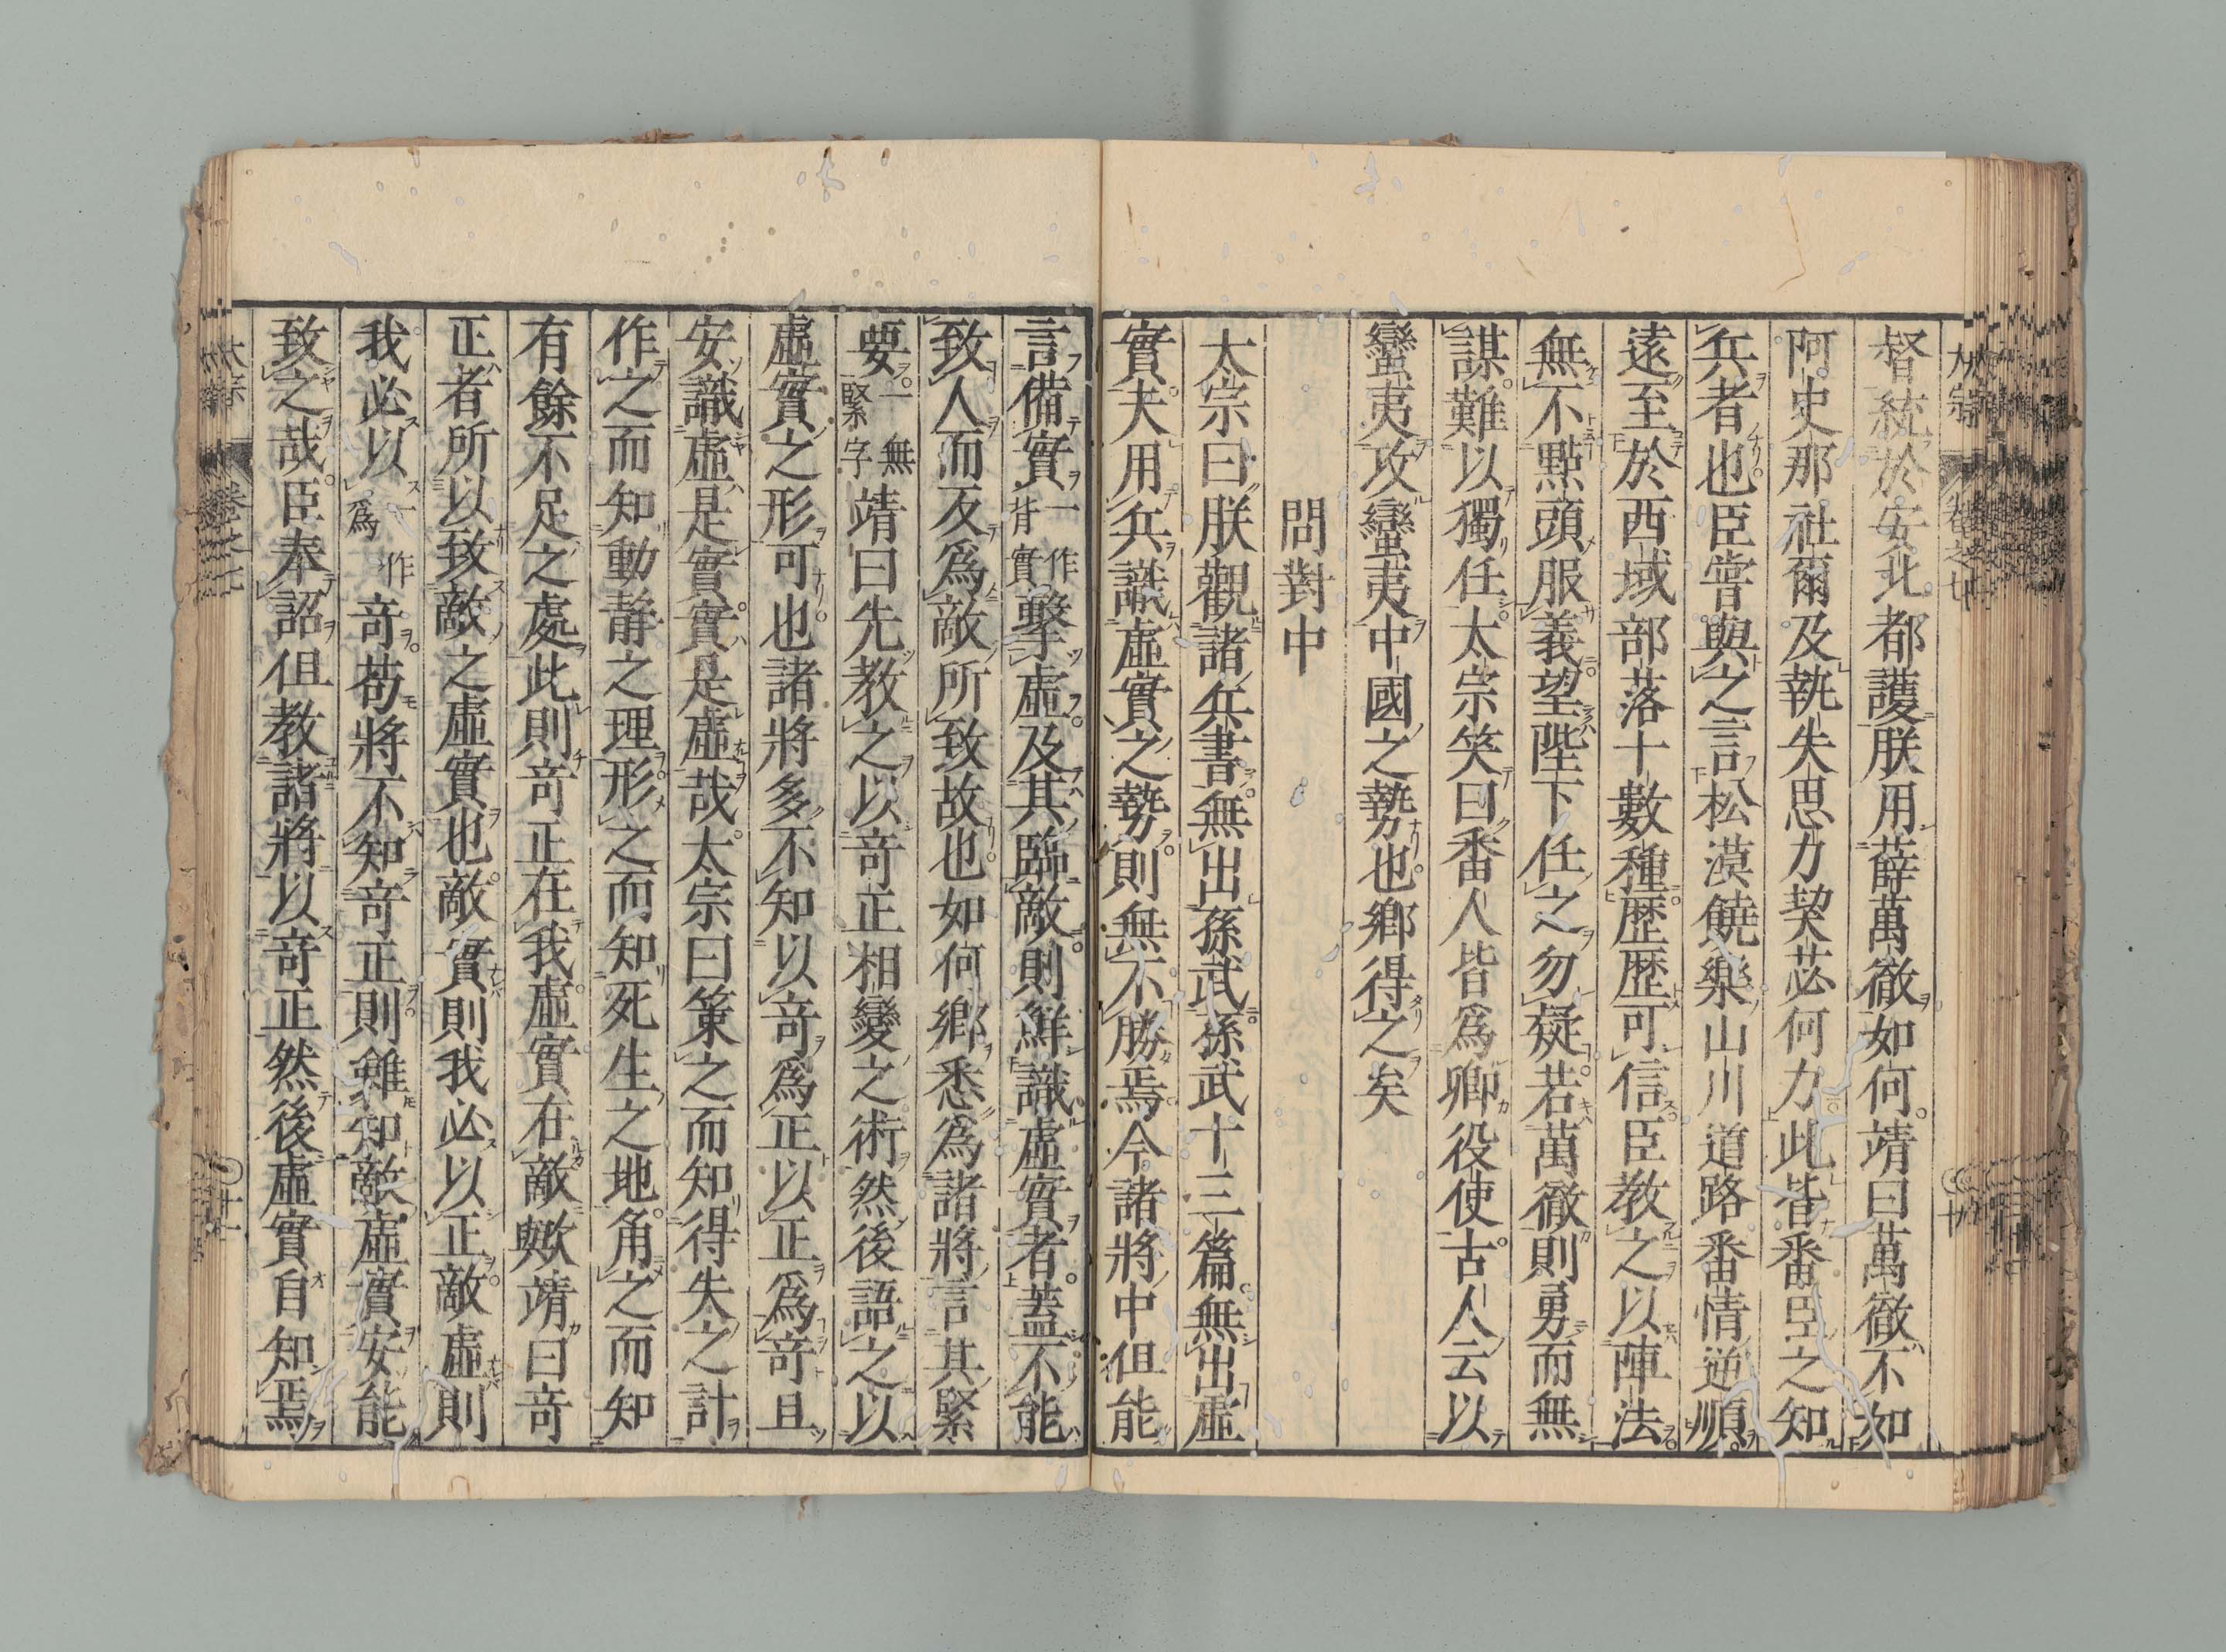 督統於安北都護朕用薛萬徹如何靖曰萬徹不如
阿史那社爾及執失思力契苾何力此皆番臣之知
兵者也臣嘗與之言松漠饒樂山川道路番情逆順
遠至於西域部落十數種歷歷可信臣教之以陣法
無不點頭服義望陛下任之勿疑若萬徹則勇而無
謀難以獨任太宗笑曰番人皆爲卿役使古人云以
蠻夷攻蠻夷中國之勢也鄉得之矣
問對中
太宗曰朕觀諸兵書無出孫武孫武十三篇無出虛
實夫用兵識虛實之勢則無不勝焉今諸將中但能
言備實一作背實擊虛及其臨敵則鮮識虛實者蓋不能
致人而反爲敵所致故也如何鄉悉爲諸將言其緊
要一無緊字靖曰先教之以竒正相變之術然後語之以
虛實之形可也諸將多不知以竒爲正以正爲竒且
安識虛是實實是虛哉太宗曰策之而知得失之計
作之而知動靜之理形之而知死生之地角之而知
有餘不足之處此則竒正在我虛實在敵歟靖曰竒
正者所以致敵之虛實也敵實則我必以正敵虛則
我必以一作爲竒苟將不知竒正則雖知敵虛實安能
致之哉臣奉詔但教諸將以竒正然後虛實自知焉